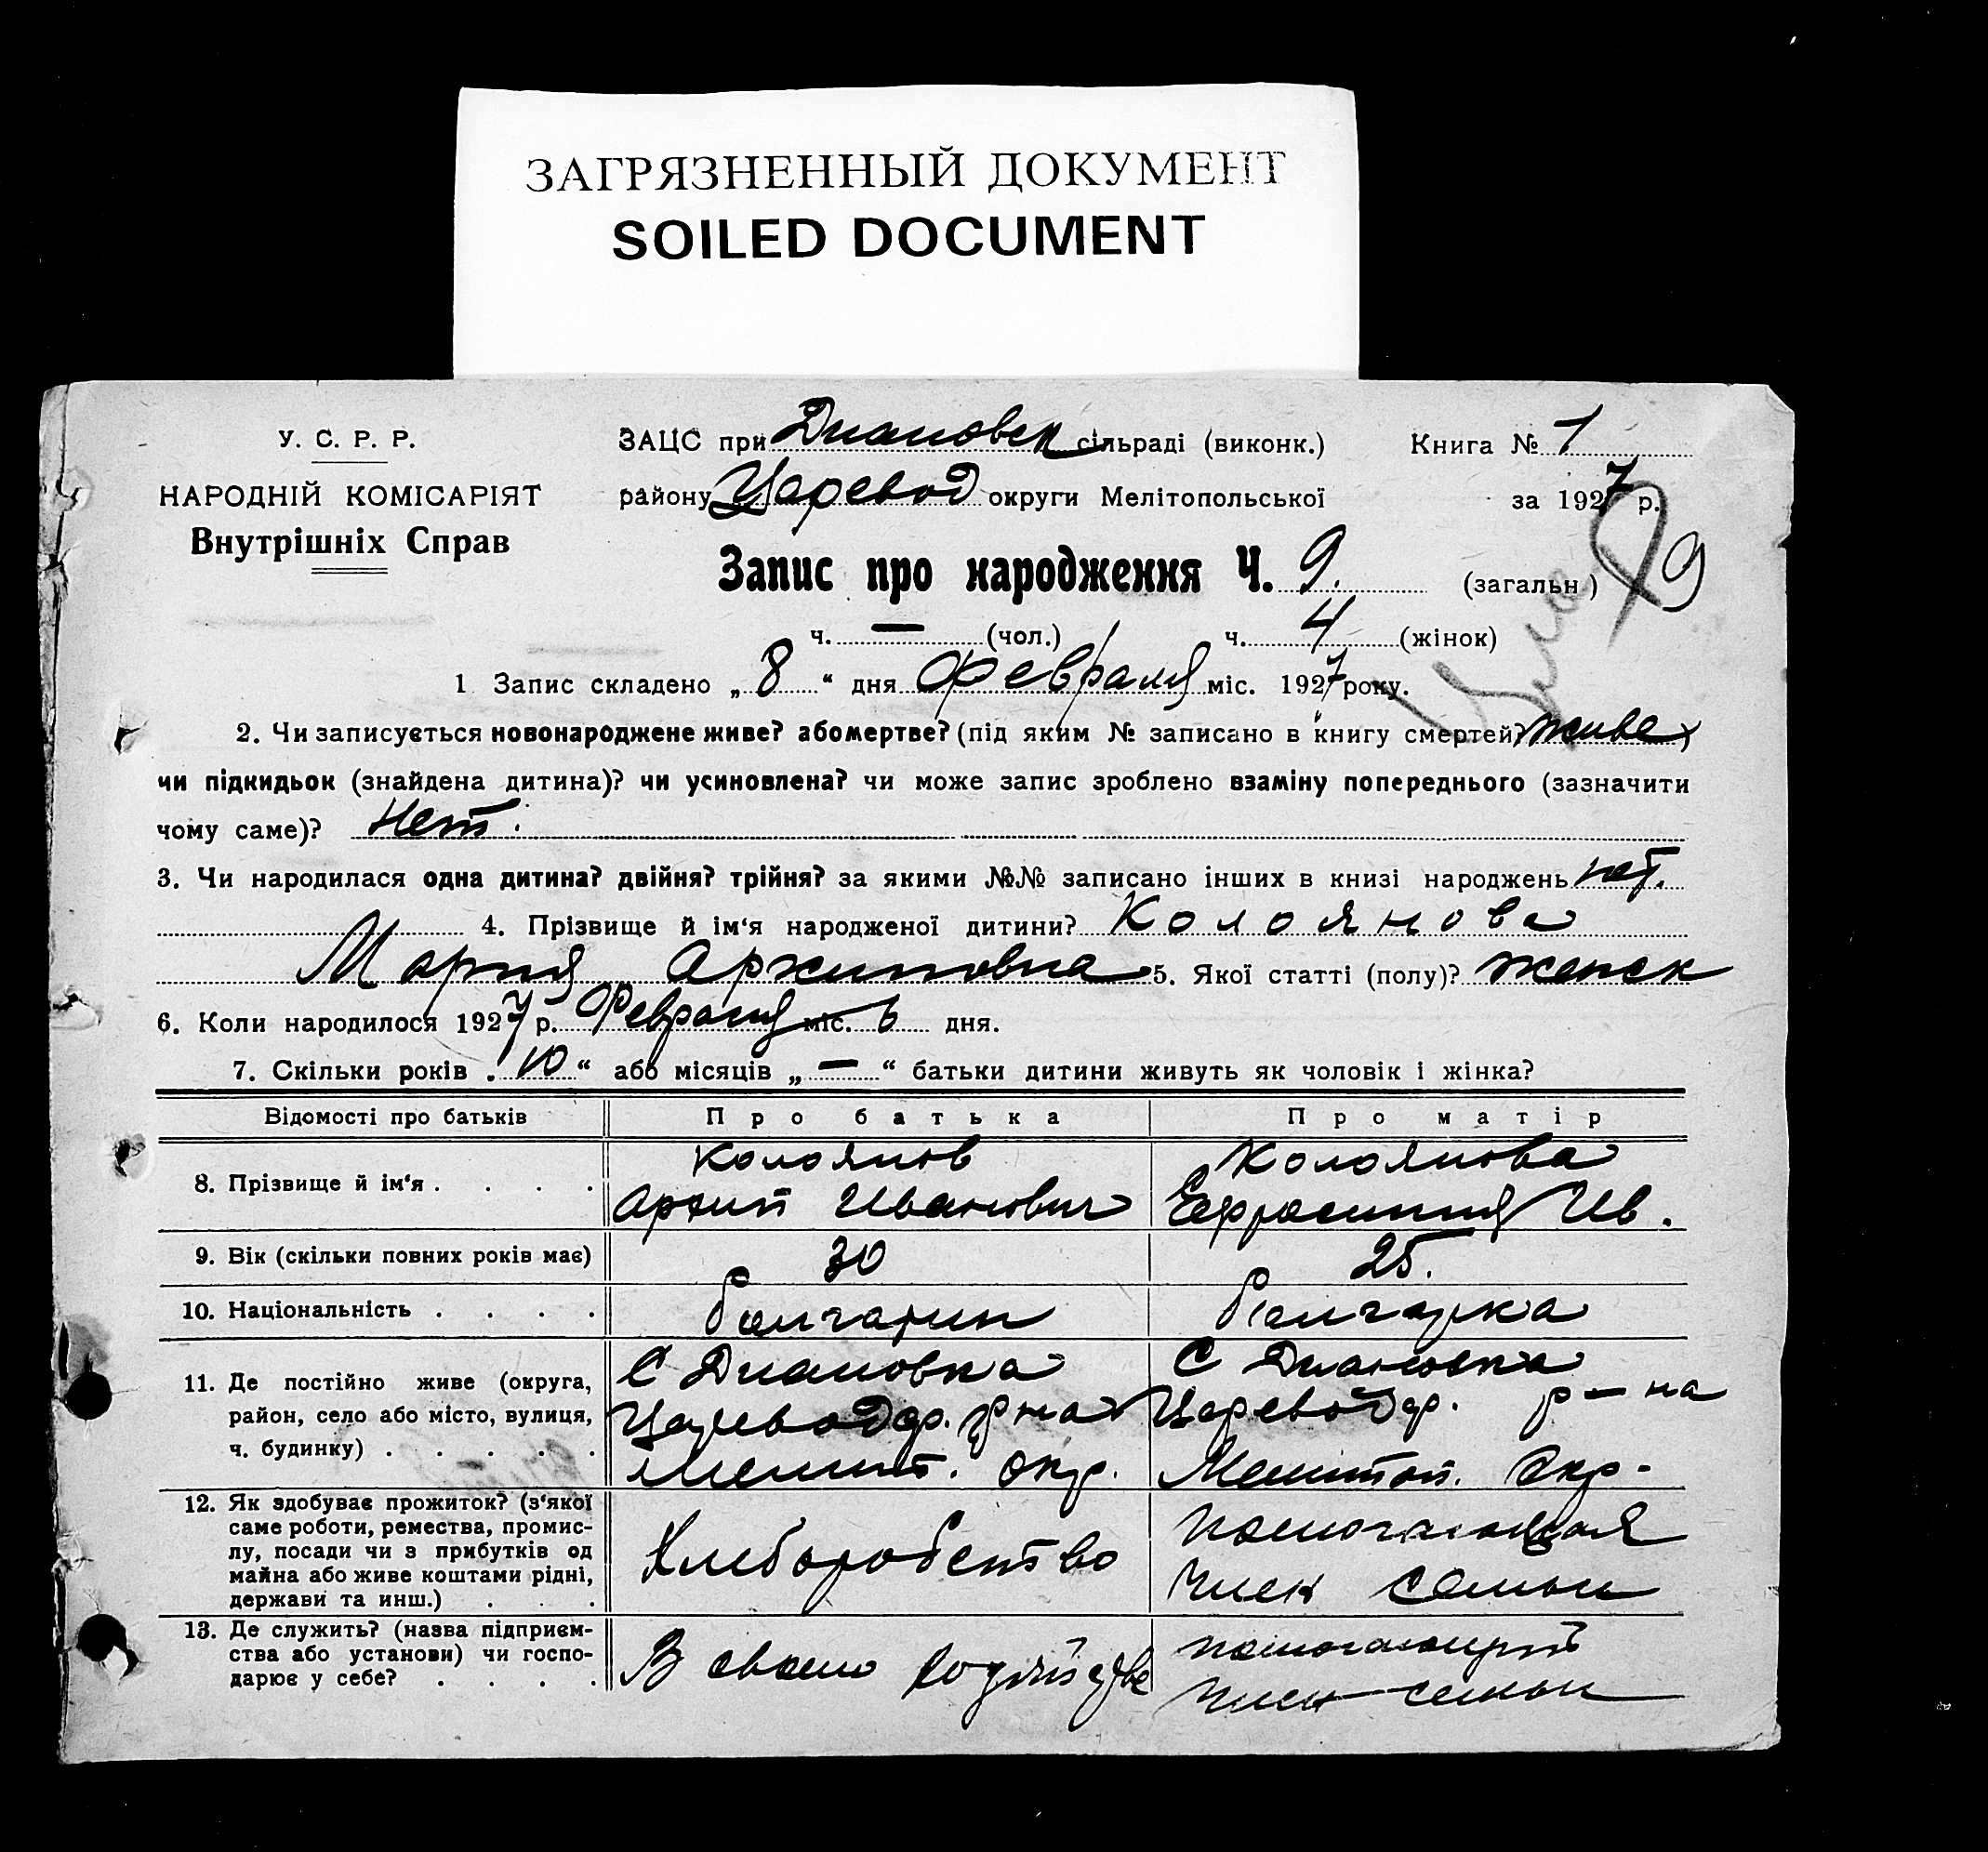 ЗАГРЯЗНЕННЫЙ ДОКУМЕНТ
SOILED DOCUMENT
У. С. Р. Р.
НАРОДНІЙ КОМІСАРІЯТ
Внутрішніх Справ
ЗАЦС при Диановск сільраді (виконк.) Книга № 1
району Царевод округи Мелітопольської за 1927 р.
Запис про народження Ч. 9. (загальн) 9
ч. — (чол.) ч. 4 (жінок)
1 Запис складено „ 8 “ дня Февраля міс. 1927 року.
2. Чи записується новонароджене живе? або мертве? (під яким № записано в книгу смертей? живе,
чи підкидьок (знайдена дитина)? чи усиновлена? чи може запис зроблено взаміну попереднього (зазначити
чому саме)? Нет.
3. Чи народилася одна дитина? двійня? трійня? за якими №№ записано інших в книзі народжень нет.
4. Прізвище й ім‘я народженої дитини? Колоянова
Мария Архиповна 5. Якої статті (полу)? женск
6. Коли народилося 1927 р. Февраля міс. 6 дня.
7. Скільки років „ 10 “ або місяців „ — “ батьки дитини живуть як чоловік і жінка?
Відомості про батьків Про батька Про матір
8. Прізвище й ім‘я . . . .
Колоянов
Архип Иванович
Колоянова
Ефросиния Ив.
9. Вік (скільки повних років має) 30 25.
10. Національність . . . . болгарин болгарка
11. Де постійно живе (округа,
район, село або місто, вулиця,
ч. будинку) . . . . .
С Диановка
Цареводар. р-на
Мелит. окр.
С Диановка
Цареводар. р-на
Мелитоп. Окр.
12. Як здобуває прожиток? (з‘якої
саме роботи, ремества, промис-
лу, посади чи з прибутків од
майна або живе коштами рідні,
держави та инш.) . . .
Хлеборобство
помогающая
член семьи
13. Де служить? (назва підприєм-
ства або установи) чи госпо-
дарює у себе? . . . .
В своем
помогающий
член семьи